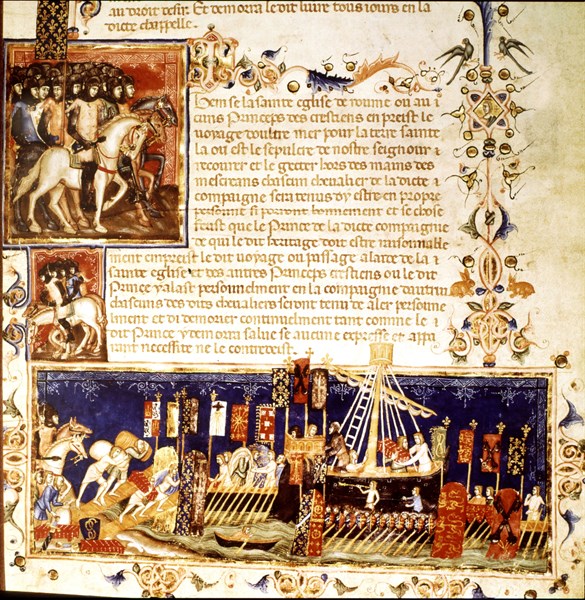 au droit desir. Et demorra le dit liure tous iours en la
dicte chappelle.
Item se la sainte eglise de roume ou au
cuns Princeps des crestiens en preist le
uoyage doultre mer pour la terre sainte
la ou est le sepulcre de nostre seignour
recourer et le gecter hors des mains des
mescreans chascun cheualier de la dicte
compaignie sera tenus dy estre en propre
personne si porront bonnement et se chose
feust que le Prince de la dicte compaignie
de qui le dit heritage doit estre raisonnable
ment empreist le dit uoyage ou passage de la
sainte eglise et des autres Princeps crestiens ou le dit
Prince y alast personnelment en la compaignie dautrui
chascuns des dits cheualiers seront tenu de aler personne
lment et di demorier continuelment tant comme le
dit Prince y demorra salue se aucune expresse et appa
rant necessite ne le contredeist